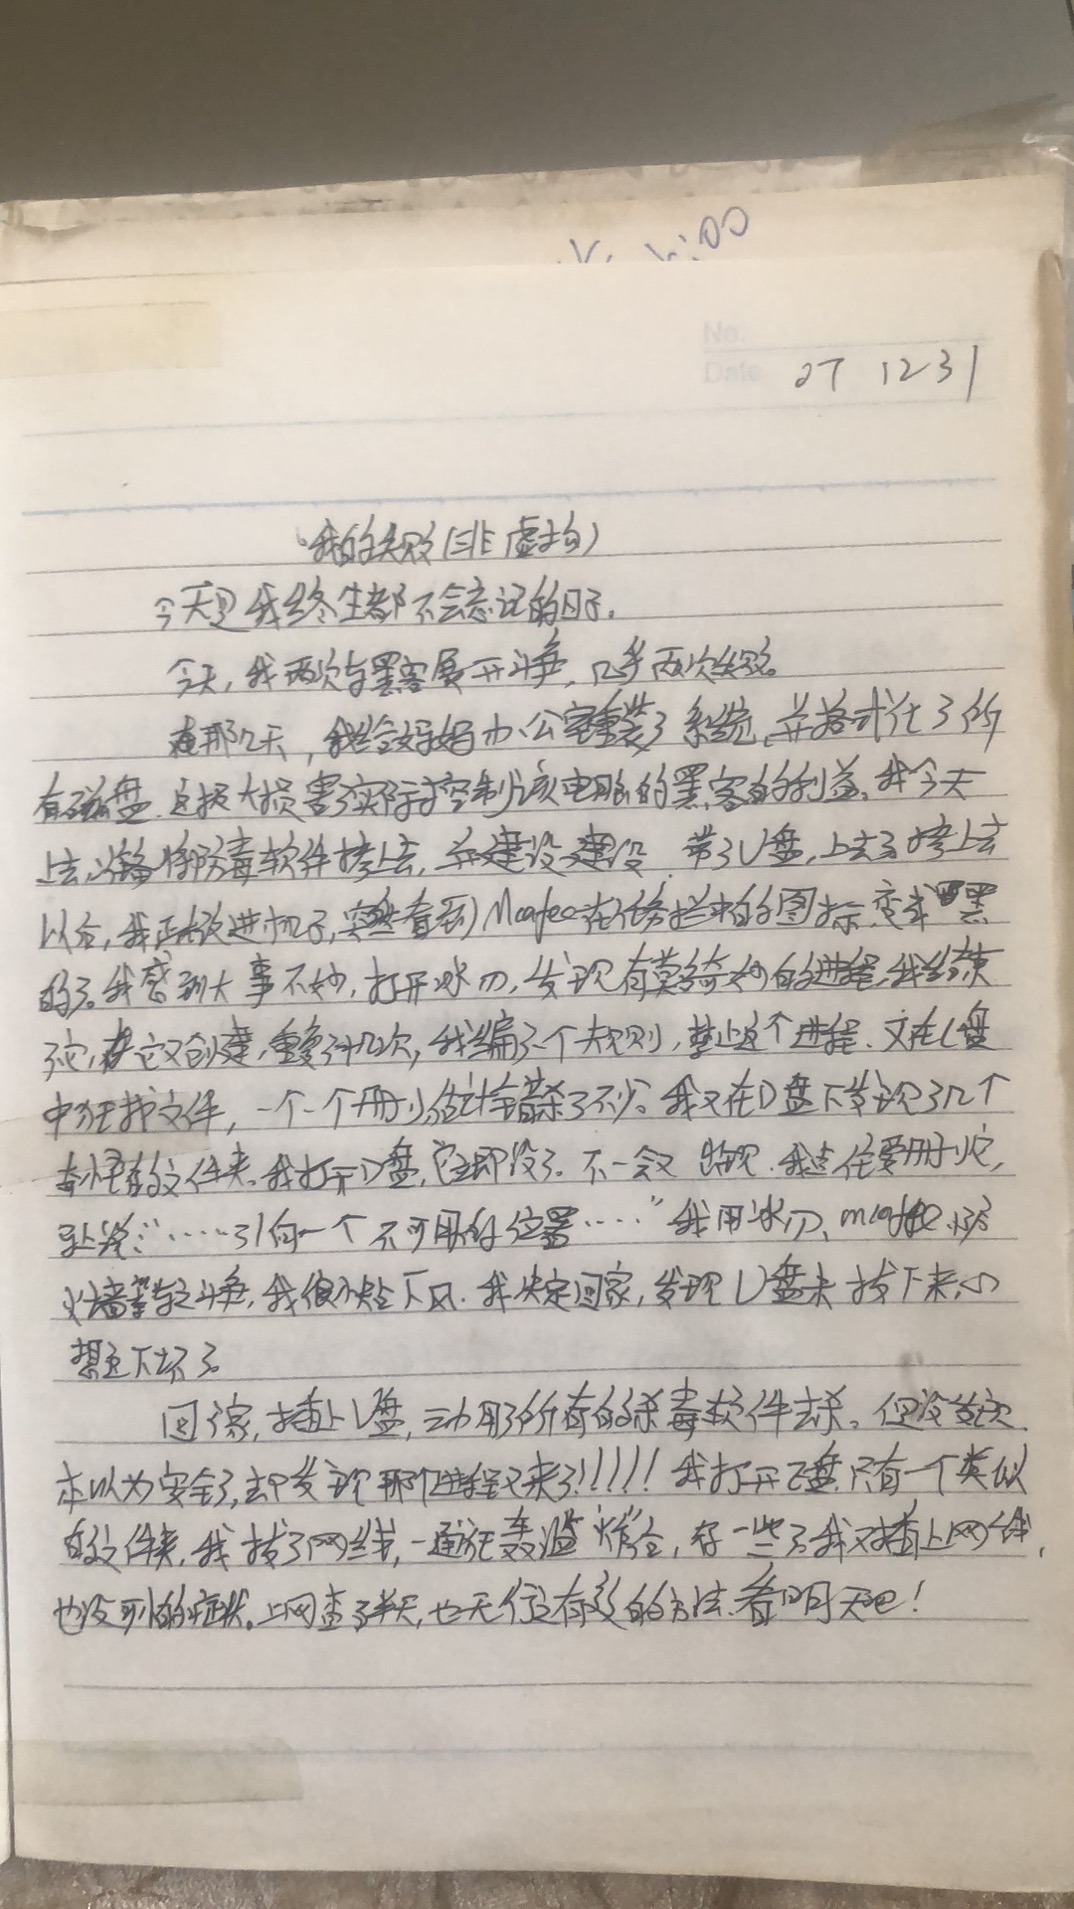 No.
Date 07 12 31
我的失败(非虚构)
今天是我终生都不会忘记的日子。
今天,我两次与黑客展开斗争,几乎两次失败。
在那几天,我给妈妈办公室重装了系统,并格式化了所
有磁盘.这极大损害了实际控制该电脑的黑客的利益,我今天
上去,准备将杀毒软件拷上去,并建设建设.带了U盘,上去了拷上去
以后,我正改进机子,突然看到Mcafee在任务栏中的图标变成黑
的了。我感到大事不妙,打开冰刃,发现有莫名奇妙的进程,我结束
了它,它又创建,重复了几次,我编了个规则,禁止这个进程.又在C盘
中狂找文件,一个一个删,估计错杀了不少。我又在D盘下发现了几个
奇怪的文件夹.我打开D盘,它立即没了.不一会又出现.我去右要删它,
"……引向一个不可用的位置……"我用冰刃、mcafee、防
火墙等与之斗争,我很快处下风.我决定回家,发现U盘未拔下来,心
想这下坏了。
回了家,插上U盘,动用了所有的杀毒软件去杀。但没发现.
本以为安全了,却发现那个进程又来了!!!!!我打开E盘.只有一个类似
的文件夹,我拔了网线,一通狂轰滥"炸",好一些了.我又插上网线,
也没别的症状.上网查了半天,也无行之有效的方法.看明天吧!